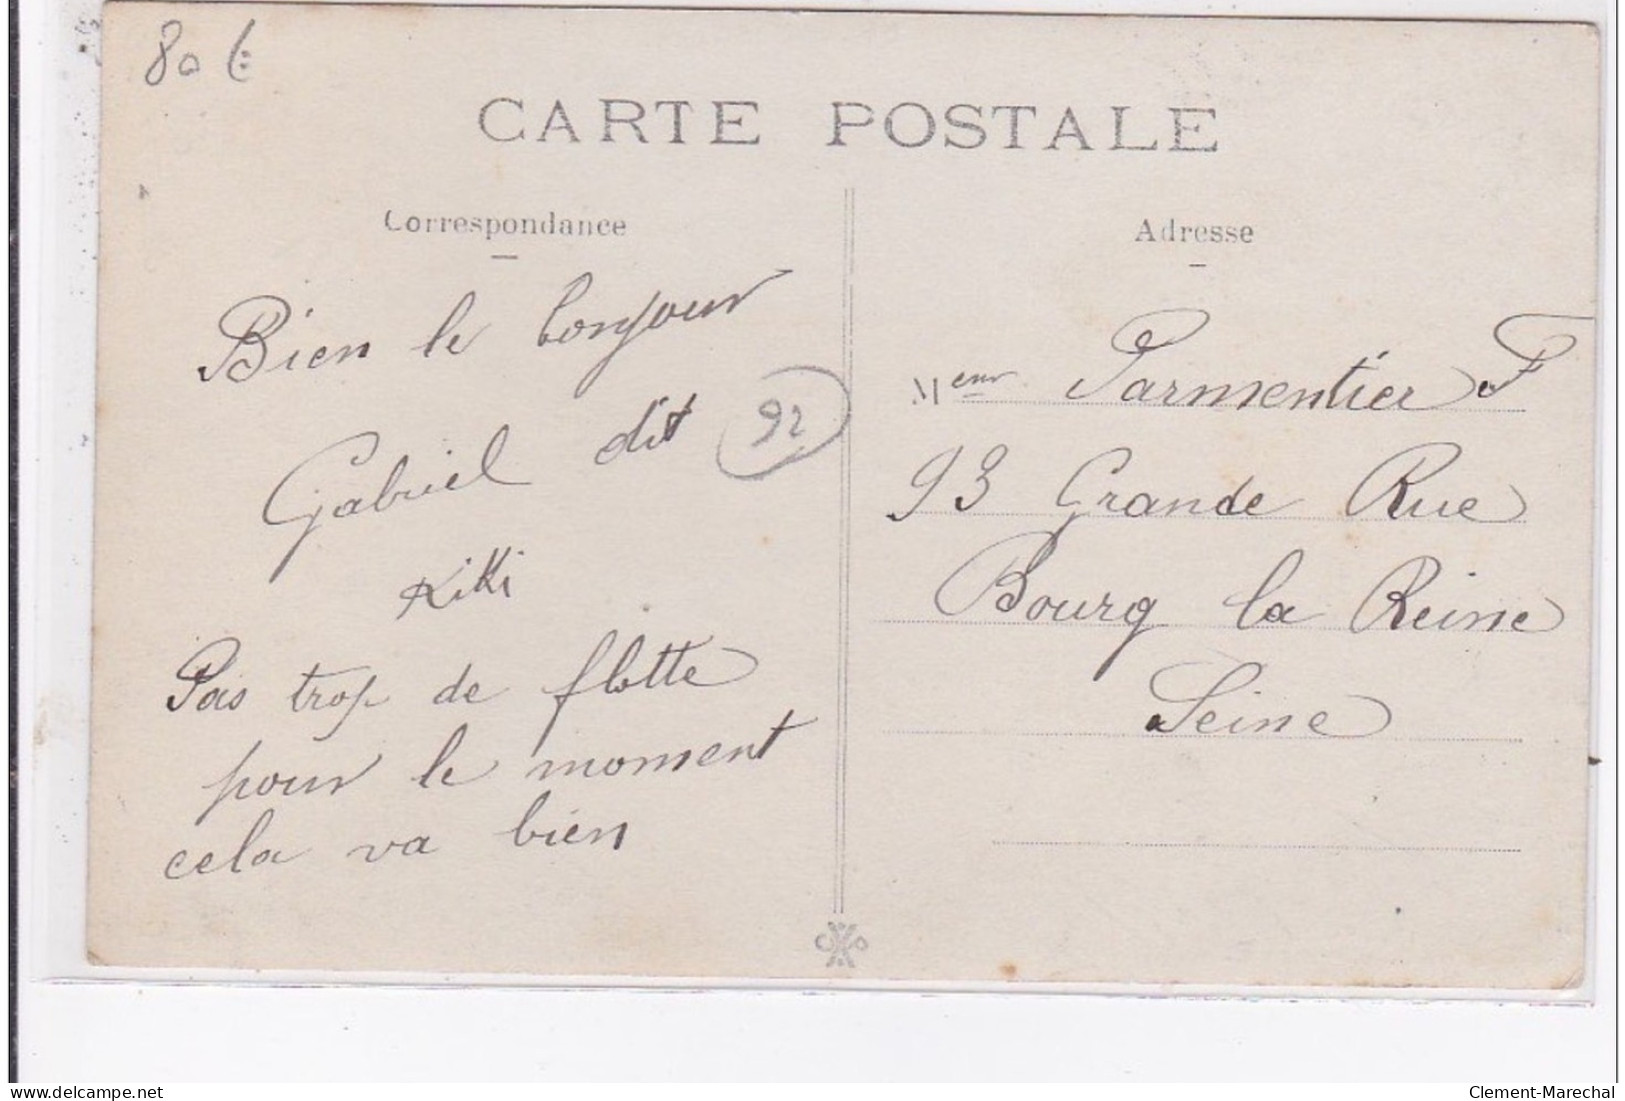 80 €
CARTE POSTALE
Correspondance
Adresse
Bien le bonjour
Gabriel dit
Kiki
92
Pas trop de flotte
pour le moment
cela va bien
Meur Parmentier F
93 Grande Rue
Bourg la Reine
Seine
www.delcampe.net
Clement-Marechal